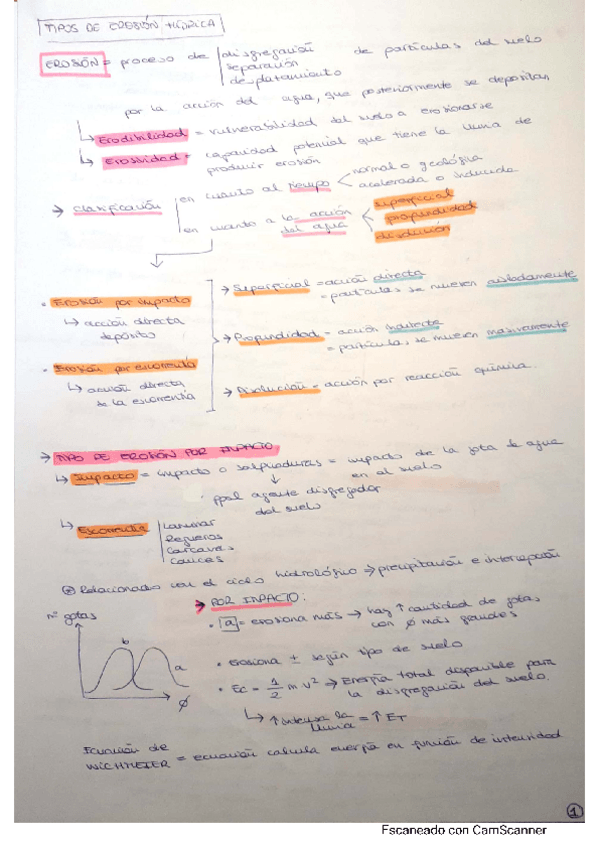 TIPOS DE EROSIÓN HÍDRICA
EROSIÓN = proceso de disgregación de partículas del suelo
separación
desplatamiento
por la acción del agua, que posteriormente se depositan
↳ Erodibilidad = vulnerabilidad del suelo a erosionarse
↳ Erosividad = capacidad potencial que tiene la lluvia de
producir erosión
→ clasificación
en cuanto al tiempo < normal o geológica
acelerada o inducida
en cuanto a la acción del agua < superficial
profundidad
disolución
• Erosión por impacto
↳ acción directa
depósito
• Erosión por escorrentía
↳ acción directa
de la escorrentía
→ Superficial = acción directa
= partículas se mueven aisladamente
→ Profundidad = acción indirecta
= partículas se mueven masivamente
→ Disolución = acción por reacción química.
→ TIPO DE EROSIÓN POR IMPACTO
↳ Impacto = impacto o salpicaduras = impacto de la gota de agua
en el suelo
↓
ppal agente disgregador
del suelo
↳ Escorrentía
Laminar
Regueros
Cárcavas
Cauces
Relacionados con el ciclo hidrológico → precipitación e intercepción
→ POR IMPACTO:
nº gotas
b
a
ϕ
• a = erosiona más → hay ↑ cantidad de gotas
con ϕ más grandes
• erosiona ± según tipo de suelo
• Ec = 1/2 m v² → Energía total disponible para
la disgregación del suelo.
↳ ↑ intensa la
lluvia = ↑ ET
Ecuación de
WICHMEIER = ecuación calcula energía en función de intensidad
1
Escaneado con CamScanner